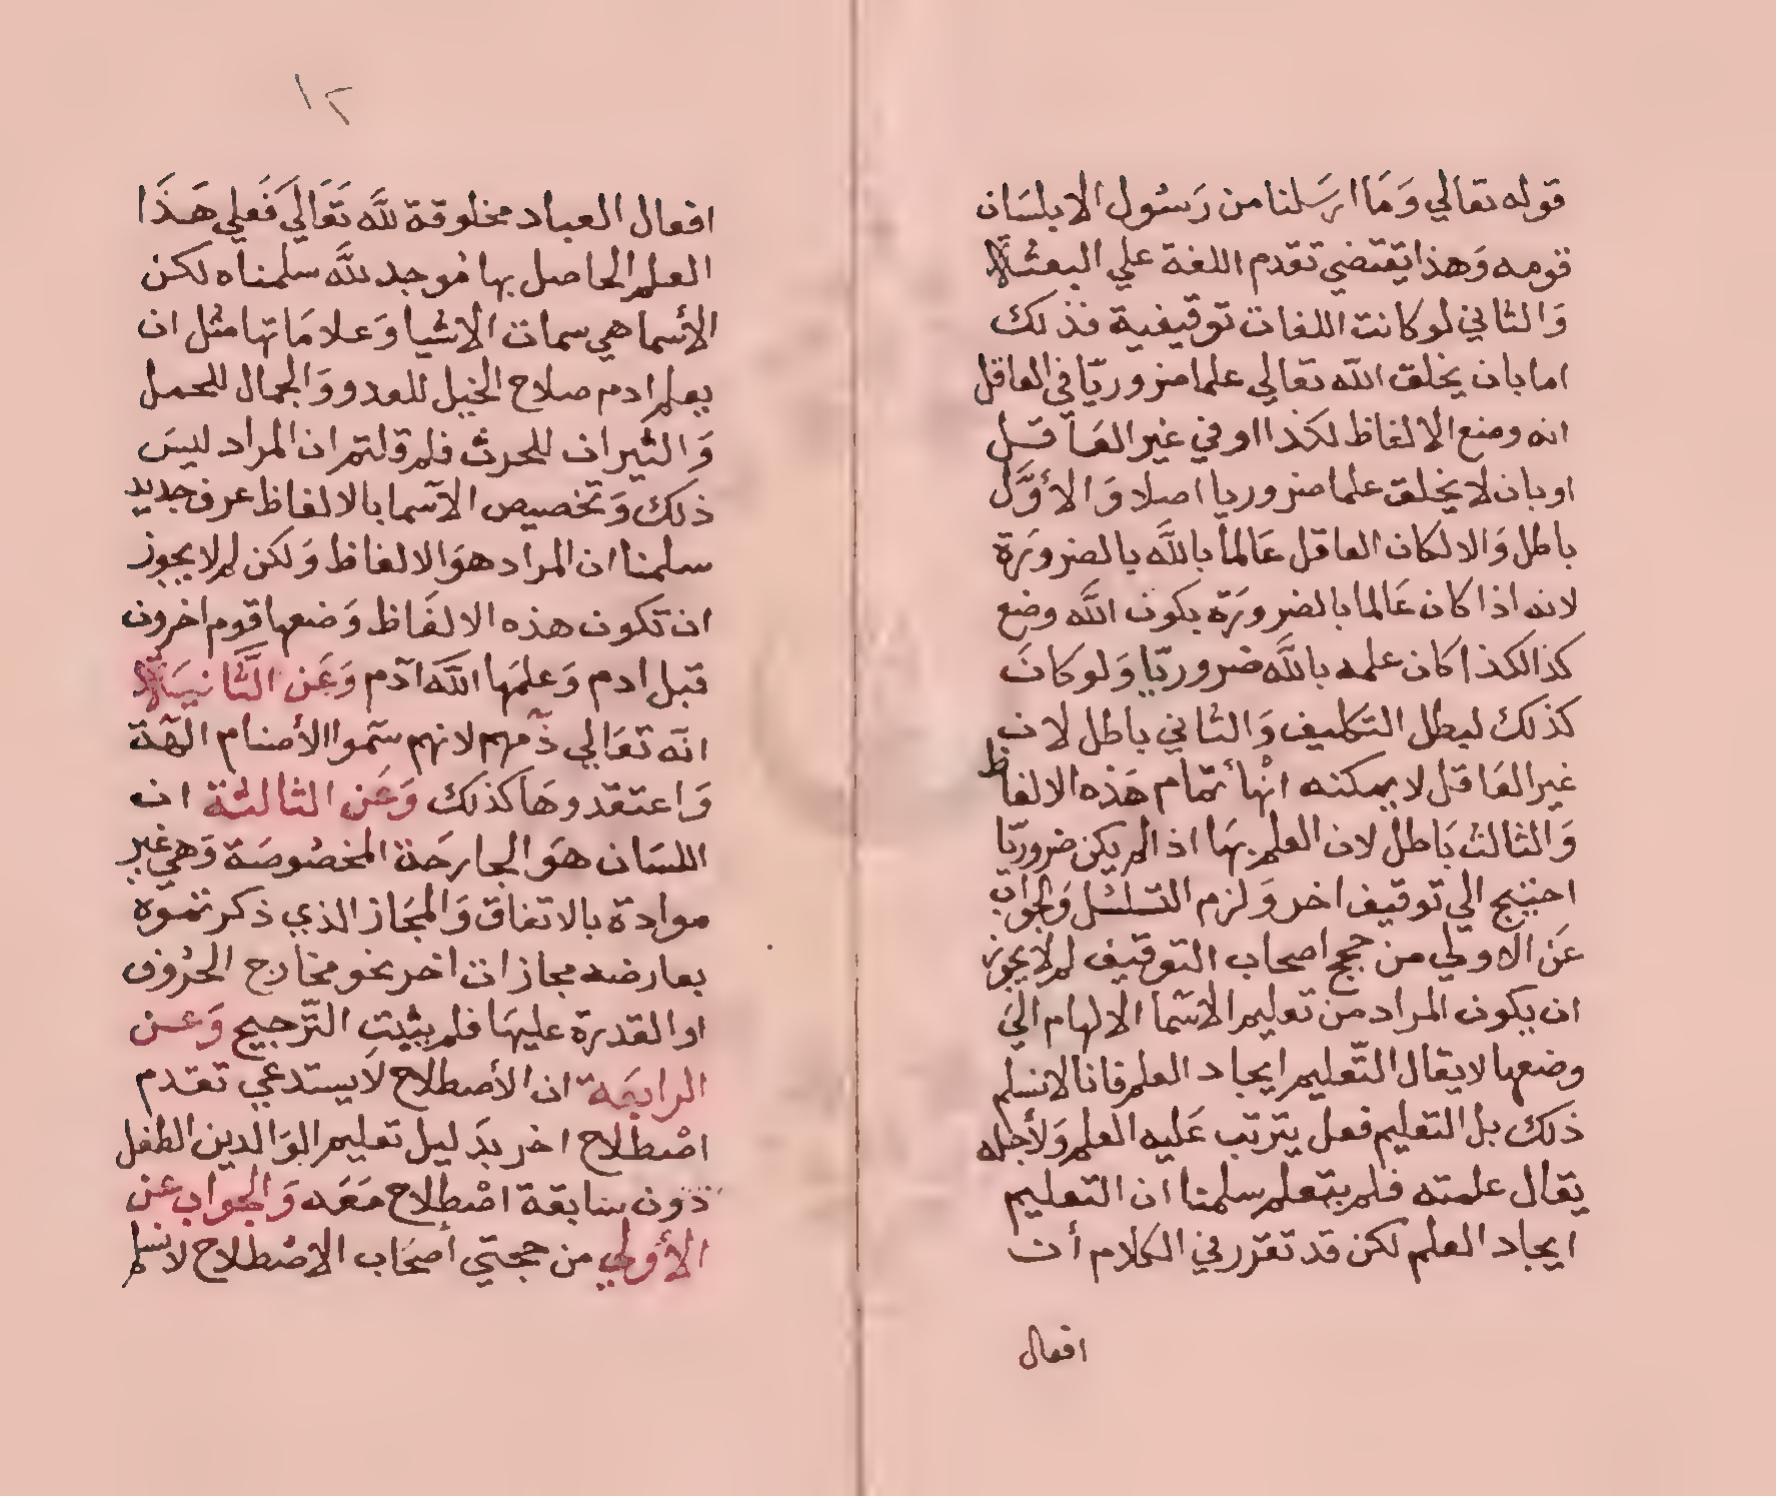 قوله تعالي وَمَا ارسَلنا من رَسُول الا بلسَان
قومه وَهذا يقتضي تقدم اللغة علي البعثة
وَالثاني لو كانت اللغات توقيفية فذلك
اما بان يخلق الله تعالي علما ضروريّا في العاقل
انه وضع الالفاظ لكذا او في غير العَاقل
او بان لا يخلق علما ضروريا اصلا وَالأوَّل
باطل وَالا لكان العاقل عَالماً باللَّه بالضرورَة
لانه اذا كان عَالما بالضرورَة بكون اللَّه وضع
كذا لكذا كان علمه باللَّه ضروريّا وَلو كانَ
كذلك لبطل التكليف وَالثاني باطل لان
غير العَاقل لا يمكنه انْهاء تمام هَذه الالفاظ
وَالثالث بَاطل لان العلم بهَا اذا لم يكن ضروريّا
احتيج الي توقيف اخر وَلزم التسلسُل وَالجواب
عَن الاولي من حجج اصحاب التوقيف لم لا يجوز
ان يكون المراد من تعليم الاسَما الالهام اليَ
وضعها لا يقال التّعليم ايجاد العلم فانا لا نسلم
ذلك بل التعليم فعل يترتب عَليه العلم وَلأجله
يقال علمته فلم يتعلم سلمنا ان التعليم
ايجاد العلم لكن قد تقرر في الكلام أن
افعال
١٢
افعال العباد مخلوقة للَّه تَعَالَي فَعلي هَذَا
العلم الحاصل بها موجد للَّه سلمناه لكن
الأسما هي سمات الاشيا وَعلامَاتها مثل ان
يعلم ادم صلاح الخيل للعدو وَالجمال للحمل
وَالثيران للحرث فلم قلتم ان المراد ليسَ
ذلك وَتخصيص الاسَما بالالفاظ عرف جديد
سلمنا ان المراد هوَ الالفاظ وَلكن لم لا يجوز
ان تكون هذه الالفَاظ وَضعها قوم اخرون
قبل ادم وَعلمَها اللَّه آدم وَعَن الثَّانيَة
انّه تعَالي ذمّهم لانهم سَموا الأصنام الهَة
وَاعتقدوهَا كذلك وَعَن الثالثة ان
اللسَان هوَ الجارحَة المخصُوصَة وَهي غير
مرادة بالاتفاق وَالمجَاز الذي ذكرتموه
يعارضه مجازات اخر نحو مخارج الحرُوف
او القدرة عليهَا فلم يثبت التّرجيح وَعن
الرابعَة ان الأصطلاح لا يستدعي تقدم
اصْطلاح اخر بدَليل تعليم الوَالدين الطفل
دون سابقة اصْطلاح مَعَه وَالجواب عن
الأوْلي من حجتي أصحَاب الاصْطلاح لا نسلم